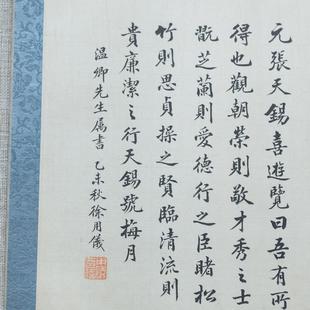 元張天錫喜遊覽曰吾有所
得也觀朝榮則敬才秀之士
翫芝蘭則愛德行之臣睹松
竹則思貞操之賢臨清流則
貴廉潔之行天錫號梅月
溫卿先生属書乙未秋徐用儀